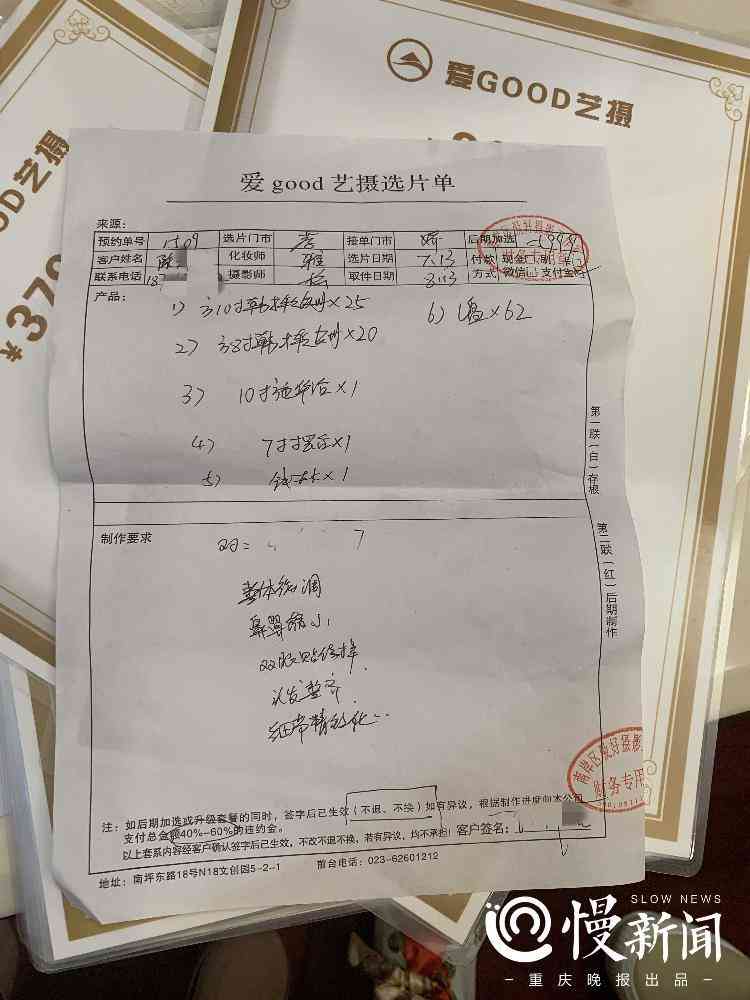 爱GOOD艺摄
爱GOOD艺摄
¥379
爱good艺摄选片单
来源：
预约单号 1509 选片门市 接单门市 后期加选
客户姓名 陈 化妆师 雅 选片日期 7.13 付款 现金 刷卡
联系电话 18 摄影师 取件日期 8.13 方式 微信 支付宝
产品：
1) 310寸韩 ×25
6) U盘×62
2) 38寸韩 ×20
3) 10寸 ×1
4) 7寸摆台×1
5) ×1
第一联（白）存根
第二联（红）后期制作
制作要求
整体微调
鼻翼缩小
双眼贴修掉
头发整齐
细节精致化
注：如后期加选或升级套餐的同时，签字后已生效（不退、不换）如有异议，根据制作进度向本公司
支付总金额40%-60%的违约金。
以上套系内容经客户确认签字后已生效，不改不退不换，若有异议，均不承担！ 客户签名：
地址：南坪东路18号N18文创园5-2-1 前台电话：023-62601212
南岸区 好摄影
财务专用
SLOW NEWS
慢新闻
重庆晚报出品